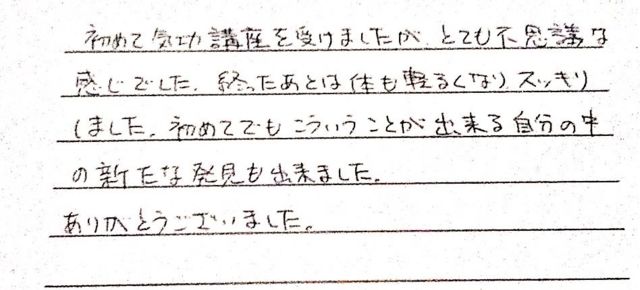 初めて気功講座を受けましたが、とても不思議な
感じでした。終ったあとは体も軽るくなり、スッキリ
しました。初めてでもこういうことが出来る自分の中
の新たな発見も出来ました。
ありがとうございました。